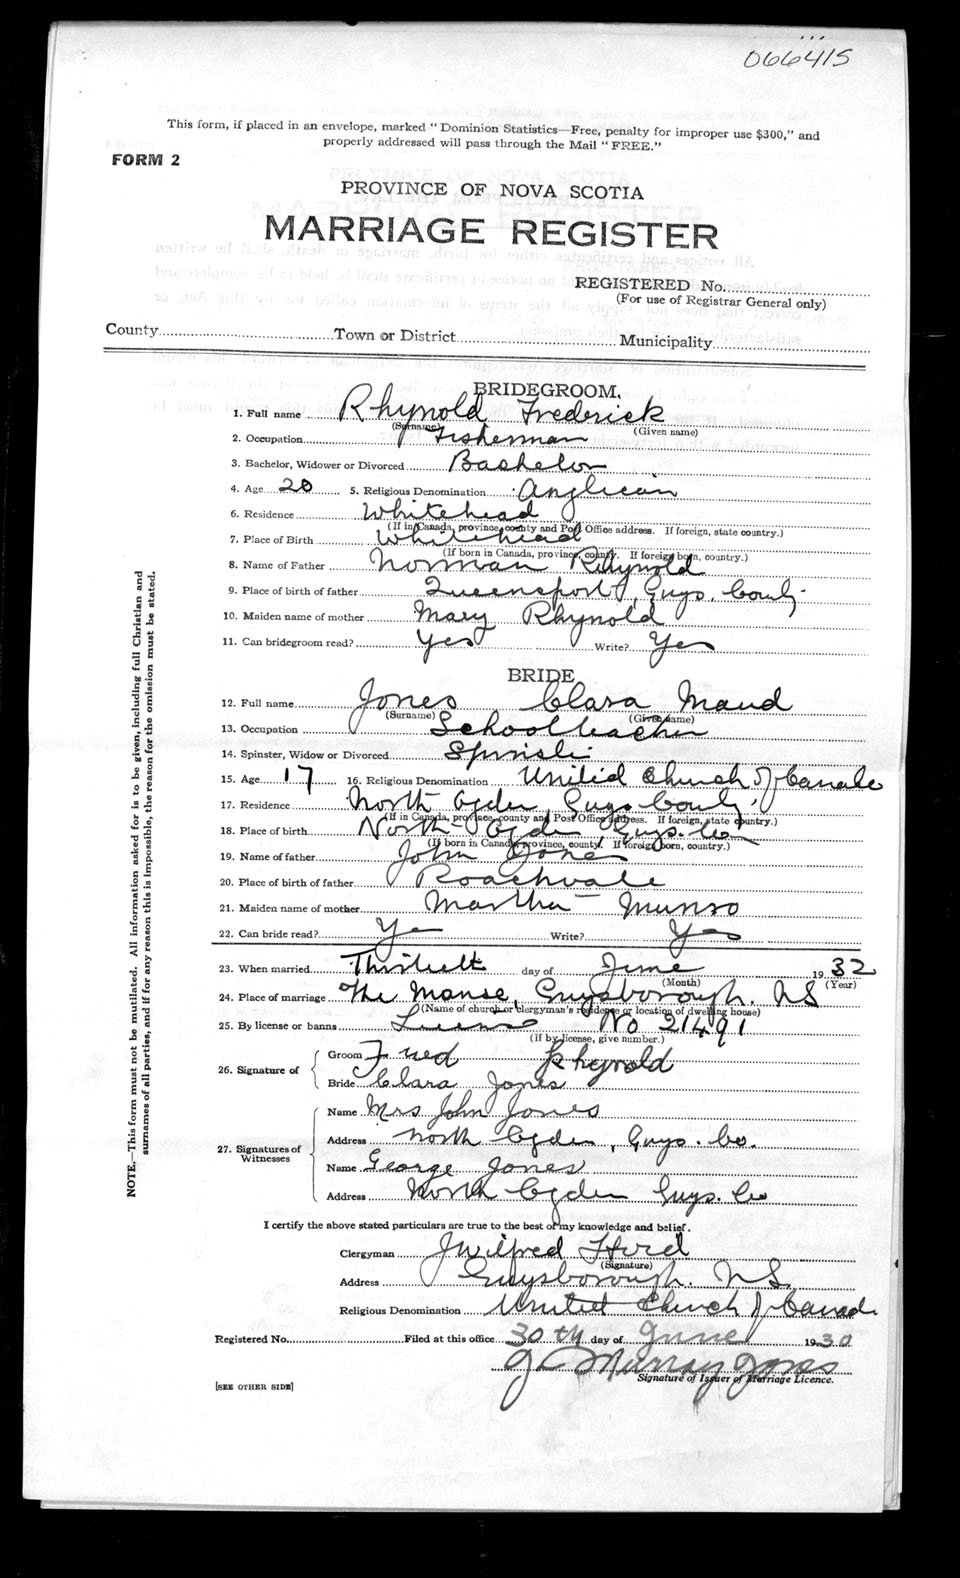 066415
This form, if placed in an envelope, marked "Dominion Statistics—Free, penalty for improper use $300," and
properly addressed will pass through the Mail "FREE."
FORM 2
PROVINCE OF NOVA SCOTIA
MARRIAGE REGISTER
REGISTERED No.
(For use of Registrar General only)
County Town or District Municipality
BRIDEGROOM.
1. Full name Rhynold Frederick
(Surname) (Given name)
2. Occupation Fisherman
3. Bachelor, Widower or Divorced Bachelor
4. Age 20 5. Religious Denomination Anglican
6. Residence Whitehead
(If in Canada, province, county and Post Office address. If foreign, state country.)
7. Place of Birth Whitehead
(If born in Canada, province, county. If foreign born, country.)
8. Name of Father Norman Rhynold
9. Place of birth of father Queensport, Guys. County
10. Maiden name of mother Mary Rhynold
11. Can bridegroom read? Yes Write? Yes
BRIDE
12. Full name Jones Clara Maud
(Surname) (Given name)
13. Occupation Schoolteacher
14. Spinster, Widow or Divorced Spinster
15. Age 17 16. Religious Denomination United Church of Canada
17. Residence North Ogden, Guys County
(If in Canada, province, county and Post Office address. If foreign, state country.)
18. Place of birth North Ogden, Guys. Co
(If born in Canada, province, county. If foreign born, country.)
19. Name of father John Jones
20. Place of birth of father Roachvale
21. Maiden name of mother Martha Munro
22. Can bride read? Yes Write? Yes
23. When married Thirtieth day of June 1932
(Month) (Year)
24. Place of marriage The Manse, Guysborough. NS
(Name of church or clergyman's residence or location of dwelling house)
25. By license or banns License No 21491
(If by license, give number.)
26. Signature of
Groom Fred Rhynold
Bride Clara Jones
27. Signatures of Witnesses
Name Mrs John Jones
Address North Ogden, Guys. Co.
Name George Jones
Address North Ogden Guys. Co
I certify the above stated particulars are true to the best of my knowledge and belief.
Clergyman J Wilfred
(Signature)
Address Guysborough. NS
Religious Denomination United Church of Canada
Registered No. Filed at this office 30th day of June 1930
J Murray Jones
Signature of Issuer of Marriage Licence.
[SEE OTHER SIDE]
NOTE.—This form must not be mutilated. All information asked for is to be given, including full Christian and
surnames of all parties, and if for any reason this is impossible, the reason for the omission must be stated.